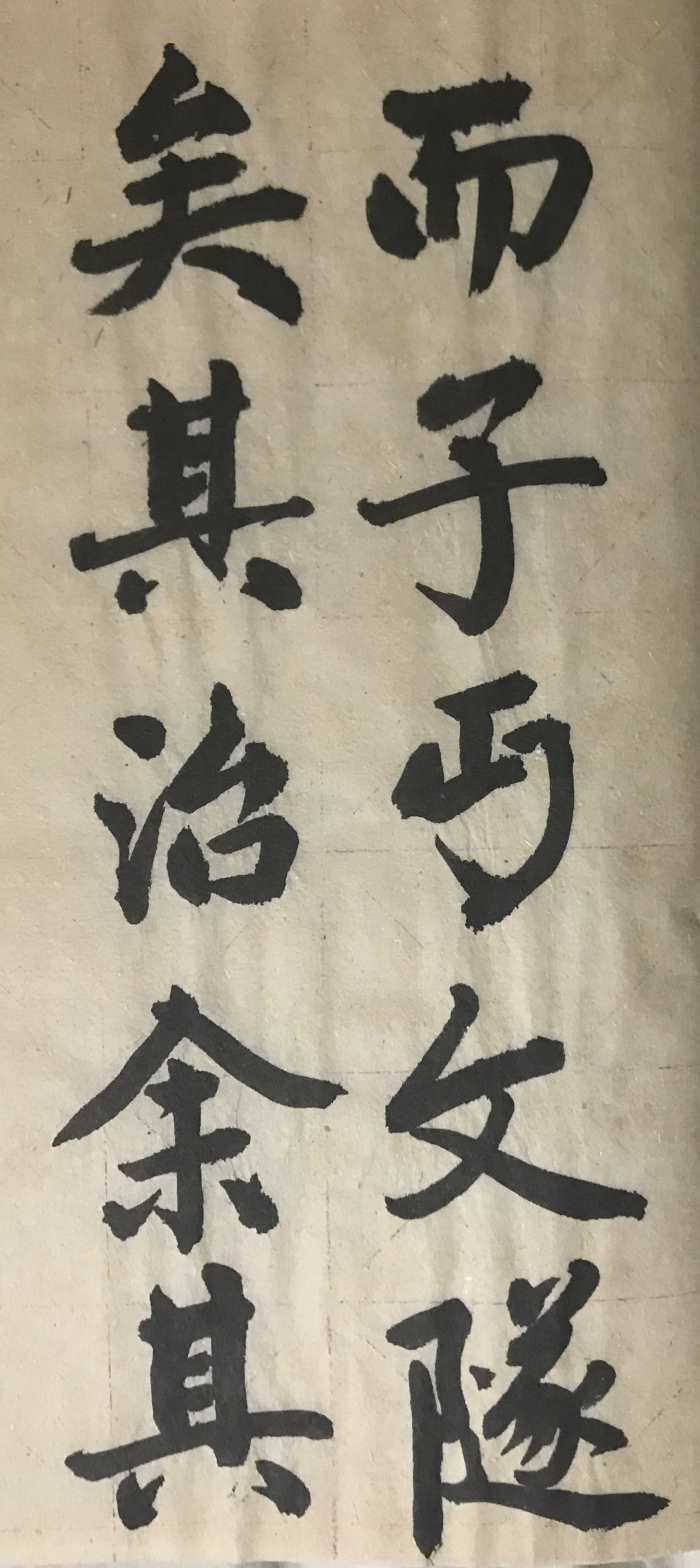 而子丐文隧
矣其治余其